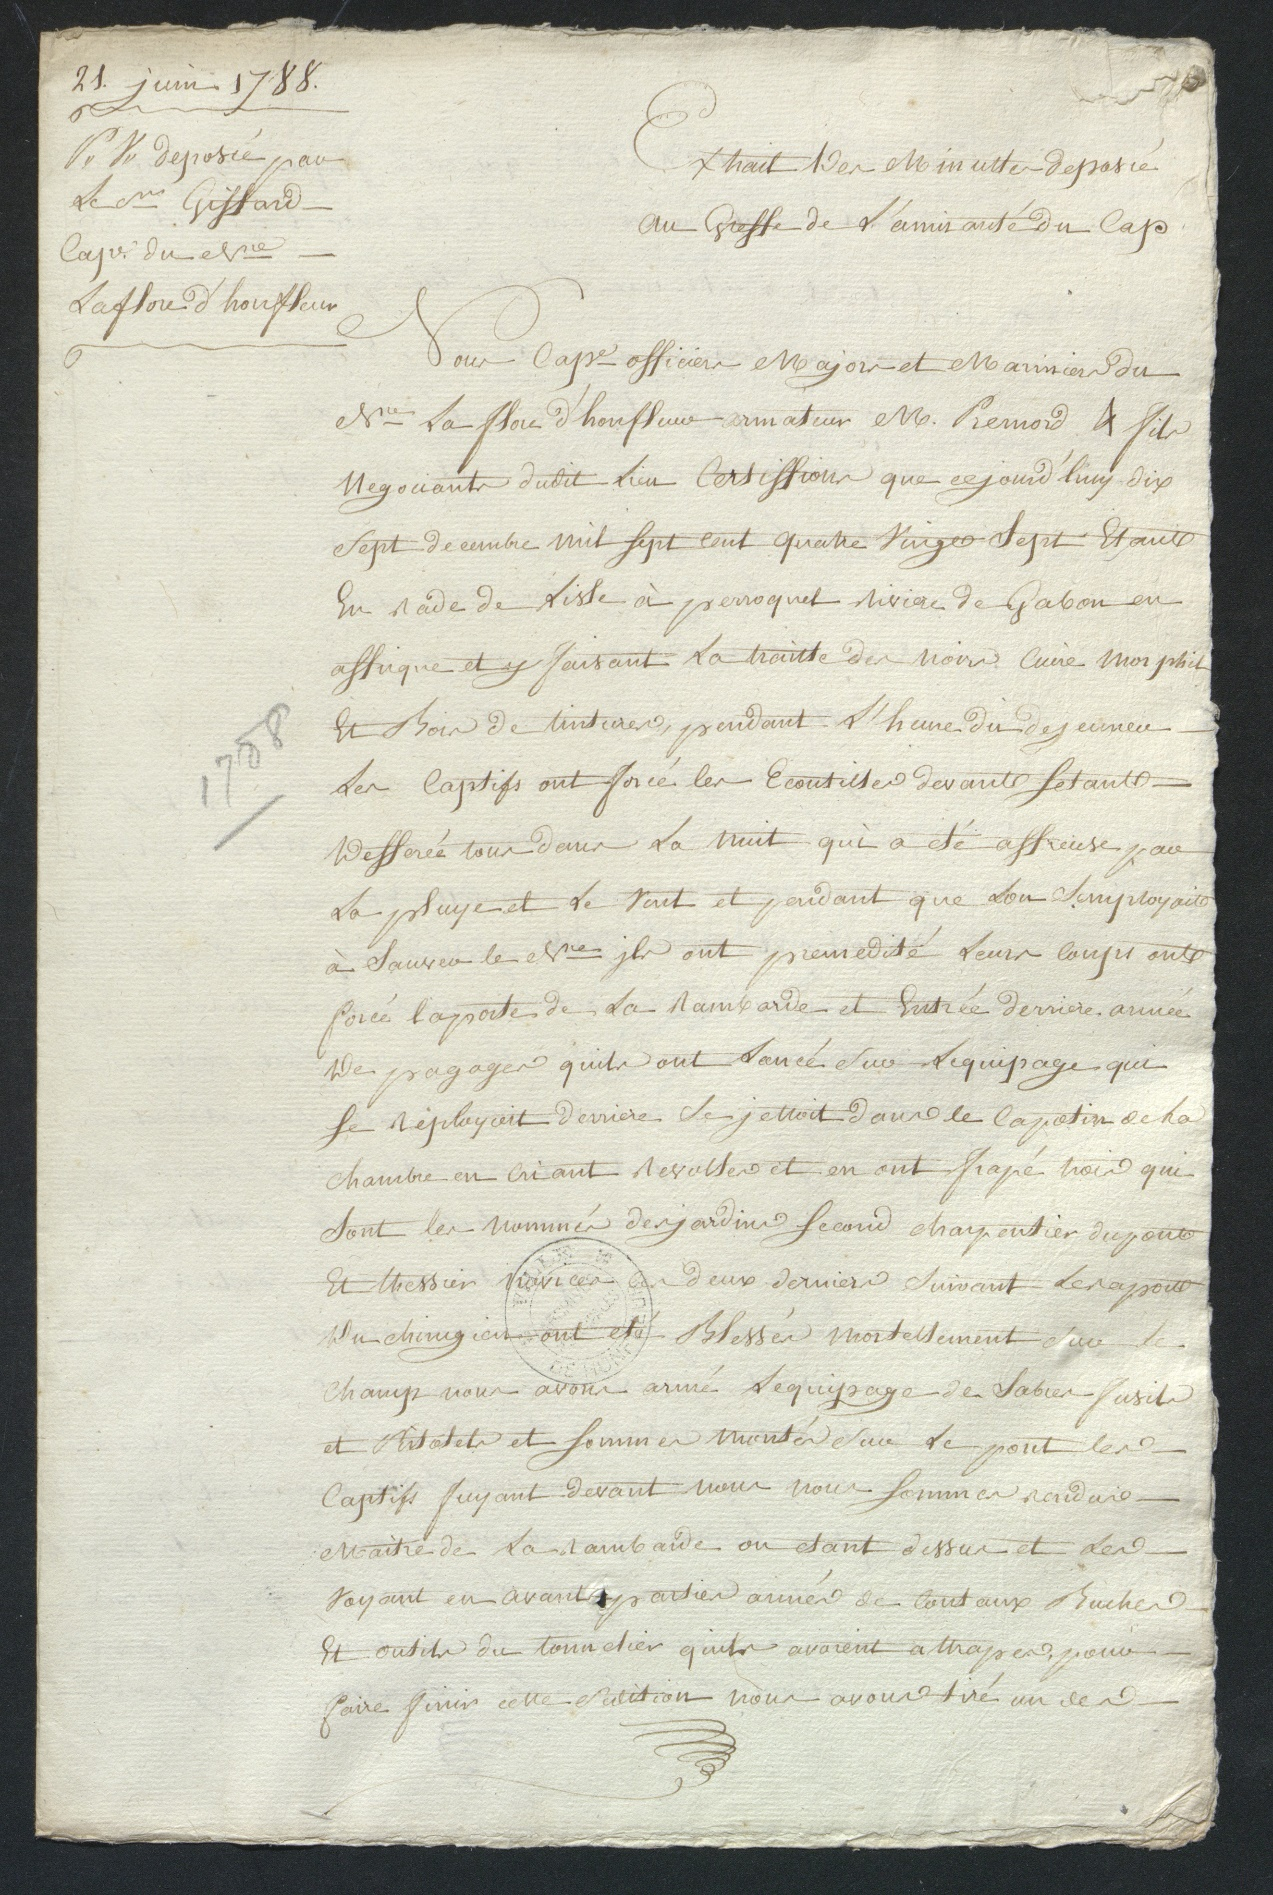 21. juin 1788.
P. V. deposée par
Le Sr. Giffard
Capne. du Nre
Laflore d'honfleur
Extrait Des Minuttes deposée
Au Greffe de L'amirauté Du Cap
Nous Capne officiers Majors et Mariniers Du
Nre La flore d'honfleur armateur M. Premord & fils
Negociants dudit Lieu Certiffions que cejourd'huy dix
Sept decembre mil sept cent quatre Vingt Sept Etant
En rade de Lisle à perroquet riviere de Gabon en
affrique et y faisant La traitte des noirs Cuire morphil
Et Bois de tintures, pendant L'heure du dejeuner
Les Captifs ont forcé les Ecoutilles devant setant
Defferée tous dans La nuit qui a été affreuse par
La pluye et Le Vent et pendant que Lon Semployait
à Sauver le Nre jls ont premedité Leurs Coups ont
forcé laporte de La rambarde et Entrée derriere armée
De pagayes quils ont Lancée Sur Lequipage qui
se réployoit derriere Se jettoit dans le Capotin de La
chambre en criant revolte et en ont frapé trois qui
Sont les nommés desjardins second charpentier dupont
Et thessier novices les deux derniers Suivant Leraport
Du chirugien ont été Blessés mortellement Sur le
champ nous avons armé Lequipage de Sabres fusils
et Pistolets et sommes montés Sur Le pont les
Captifs fuyant devant nous nous sommes rendus
Maitre de La rambarde ou etant dessus et Les
Voyant en avant partie armés de Coutaux Buches
Et outils du tonnelier quils avoient attrapes, pour
faire finir cette Sedition nous avons tiré un des
1788